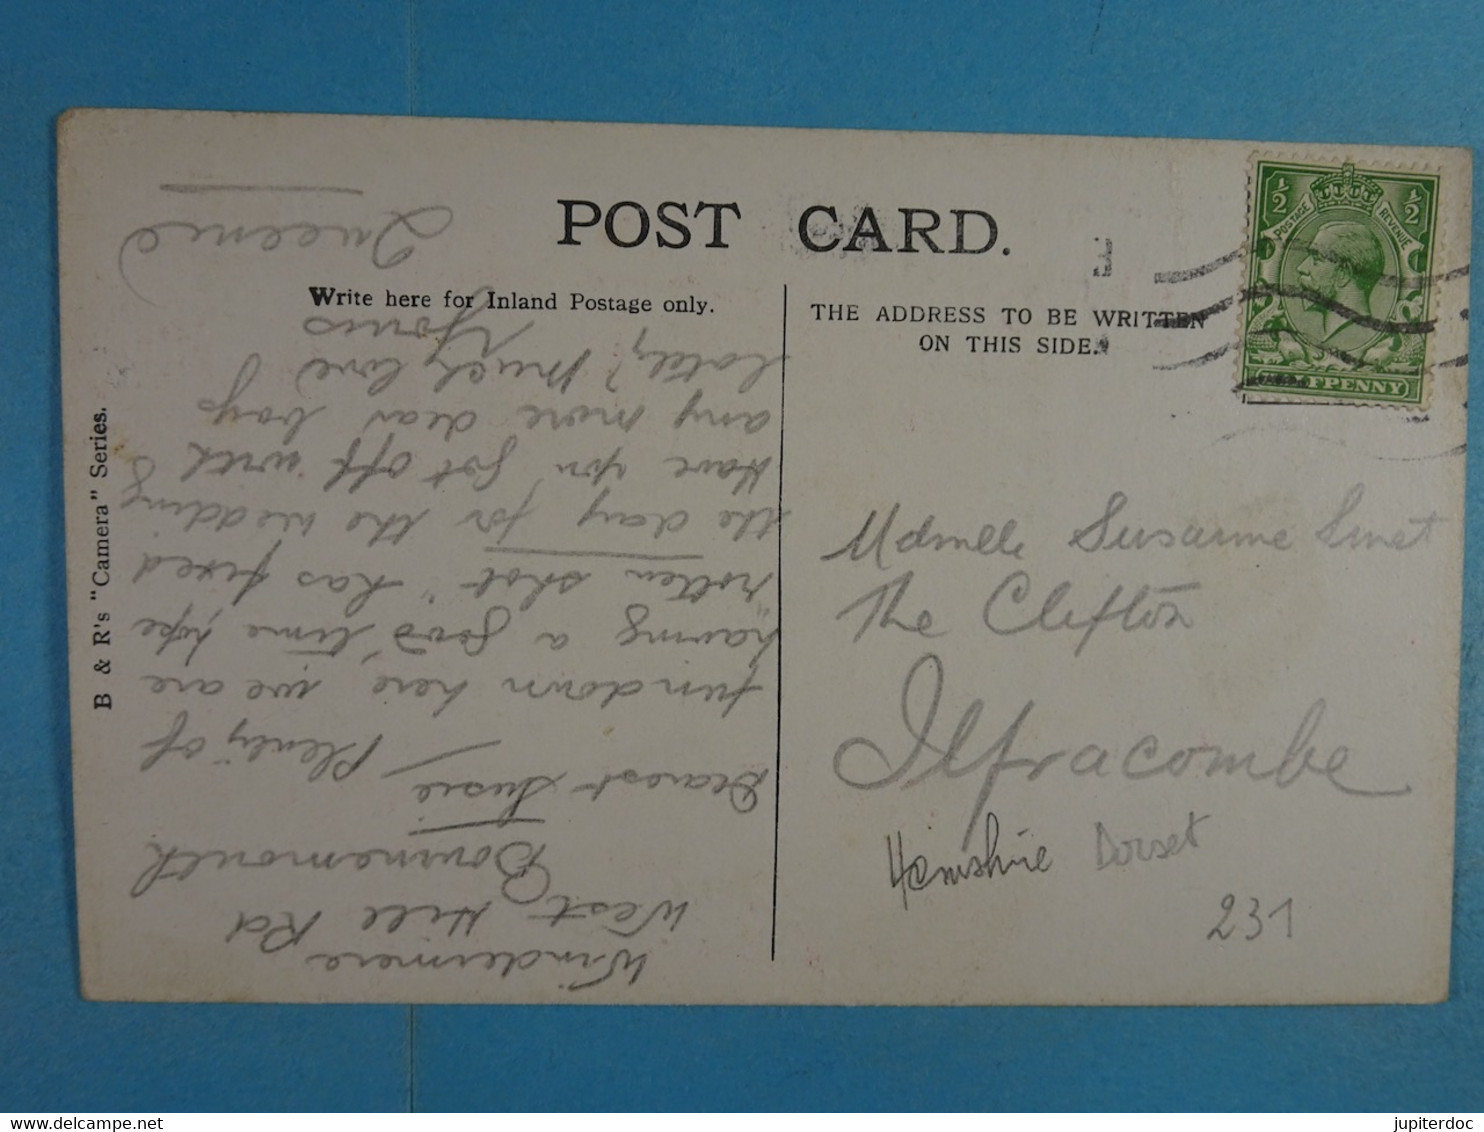 POST CARD.
Write here for Inland Postage only.
THE ADDRESS TO BE WRITTEN
ON THIS SIDE.
B & R's "Camera" Series.
½ ½
POSTAGE REVENUE
HALFPENNY
Windermere
West Hill Rd
Bournemouth
Dearest Susie, Plenty of
fun down here, we are
having a good time hope
"rotten shot" has fixed
the day for the wedding
Have you got off with
any more dear boys
lately? Much love
Yours
Queenie
Mdmelle Susanne
The Clifton
Ilfracombe
Hamshire Dorset
231
jupiterdoc